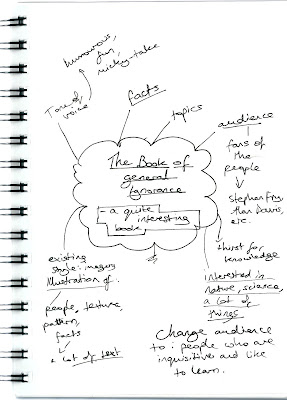 humourous,
fun,
micky-take
Tone of
voice
facts
topics
audience
fans of
the
people
Stephen Fry,
Alan Davis,
etc.
thirst for
knowledge
interested in
nature, science,
a lot of
things
The Book of
general
Ignorance
- a quite
interesting
book
existing
style: imagery
Illustration of:
people, texture,
pattern,
facts
a lot of text
Change audience
to: people who are
inquisitive and like
to learn.